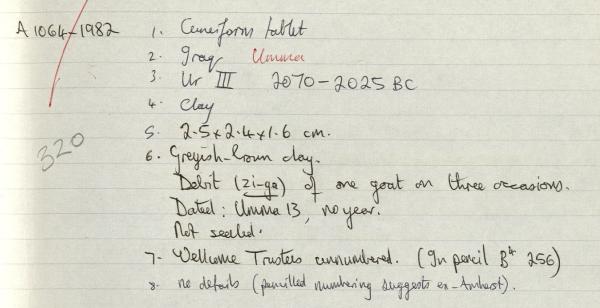 A 1064-1982 1. Cuneiform tablet
2. Iraq Umma
3. Ur III 2070-2025 BC
4. Clay
5. 2.5 x 2.4 x 1.6 cm.
320
6. Greyish-brown clay.
Debit (zi-ga) of one goat on three occasions.
Dated: Umma 13, no year.
Not sealed.
7. Wellcome Trustees unnumbered. (In pencil B4 256)
8. no details (pencilled numbering suggests ex-Amherst).